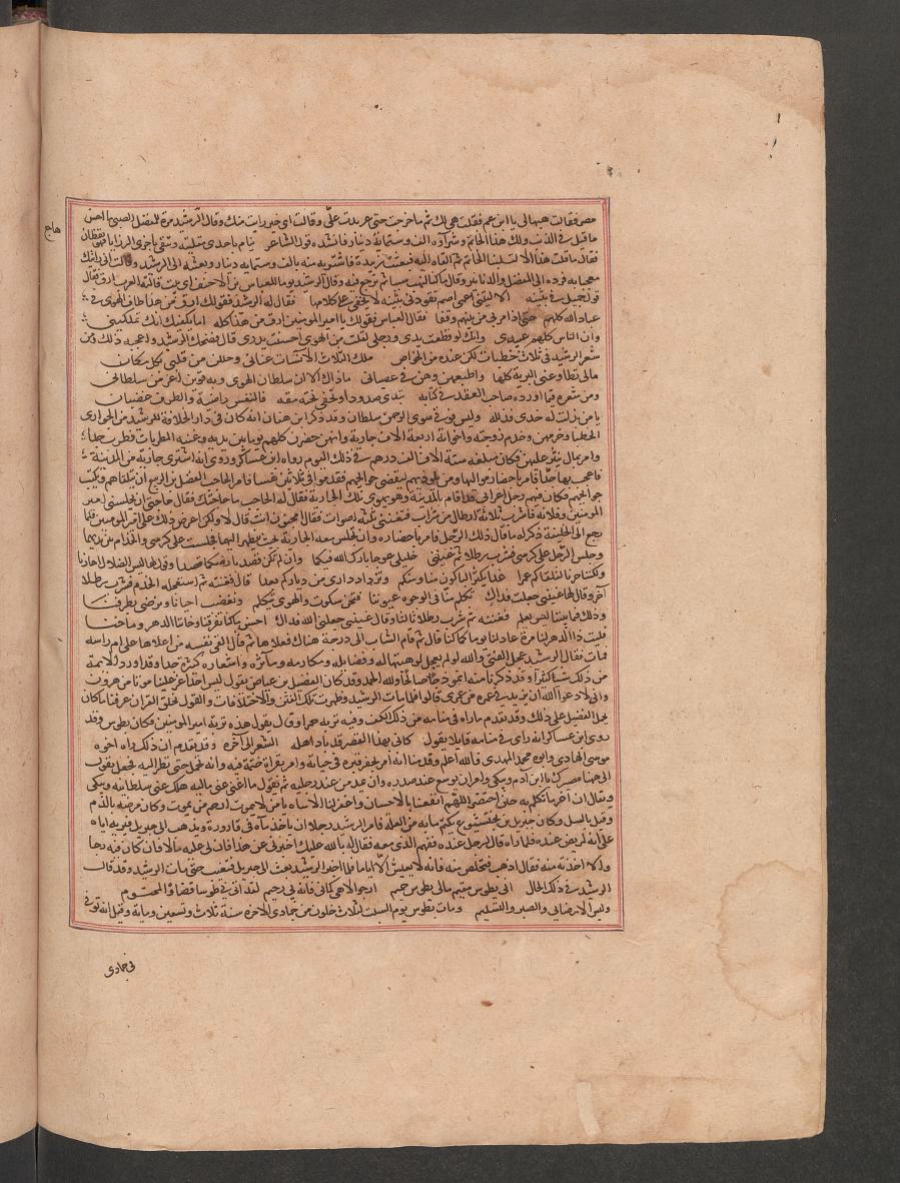 مصر فقالت هبها لي يا ابن عم فقلت هي لك ثم ما خرجت حتى عربدت علي وقالت اي خير رايت منك وقال الرشيد مرة للمفضل الضبي ما احسن
هاج
ما قيل في الذئب ولك هذا الخاتم وشراؤه الف وستمائة دينار فانشده قول الشاعر ينام باحدى مقلتيه ويتقي باخرى الرزايا فهو يقظان
فقال ما قلت هذا الا لتسلبنا الخاتم ثم القاه اليه فبعثت زبيدة فاشترته منه بالف وستمايه دينار وبعثت به الى الرشيد وقالت اني رايتك
معجبا به فرده الى المفضل والدنانير وقال ما كنا لنهب شيا ثم نرجع فيه وقال الرشيد يوما للعباس بن الاحنف اي بيت قالته العرب ارق فقال
قول جميل في بثينة الا ليتني اعمى اصم تقودني بثينة لا يخفى علي كلامها فقال له الرشيد فقولك ارق من هذا طاف الهوى في
عباد الله كلهم حتى اذا مر بي من بينهم وقفا فقال العباس فقولك يا امير المومنين ارق من هذا كله اما يكفيك انك تملكيني
وان الناس كلهم عبيدي وانك لو قطعت يدي ورجلي لقلت من الهوى احسنت زيدي قال فضحك الرشيد واعجبه ذلك ومن
شعر الرشيد في ثلاث حظيات كن عنده من الخواص ملك الثلاث الآنسات عناني وحللن من قلبي بكل مكان
مالي تطاوعني البرية كلها واطيعهن وهن في عصياني ما ذاك الا ان سلطان الهوى وبه قوين اعز من سلطاني
ومن شعره فيما اورده صاحب العقد في كتابه تبدي صدودا وتخفي تحته مقة فالنفس راضية والطرف غضبان
يا من بذلت له خدي فذلله وليس فوقي سوى الرحمن سلطان وقد ذكر ابن هبار انه كان في دار الخلافة للرشيد من الجواري
الحظيا وخدمهن وخدم زوجته واخواته اربعة الاف جارية وانهن حضرن كلهم يوما بين يديه وغنته المطربات فطرب جدا
وامر بمال ينثر عليهن فكان مبلغه ستة الاف الف درهم في ذلك اليوم رواه ابن عساكر وروى انه اشترى جارية من المدينة
فاعجب بها جدا فامر باحضار مواليها ومن يلوذ بهم ليقضي حوائجهم فقدموا في ثلاثين نفسا فامر الحاجب الفضل بن الربيع ان يتلقاهم ويكتب
حوائجهم فكان فيهم رجل اعرابي قد اقام بالمدينة وهو يهوى تلك الجارية فقال له الحاجب ما حاجتك فقال حاجتي ان يجلسني امير
المومنين وفلانة فاشرب ثلاثة ارطال من شراب فتغنني ثلثه اصوات فقال امجنون انت قال لا ولكن اعرض ذلك على امير المومنين فلما
رجع الى الخليفة ذكر له ما قال ذلك الرجل فامر باحضاره وان تجلس معه الجارية بحيث ينظر اليها فجلست على كرسي والخدام بين يديها
وجلس الرجل على كرسي فشرب رطلا ثم غنيني خليلي عوجا بارك الله فيكما وان لم تكن هند بارضكما قصدا وقولا لها ليس الضلال اجازنا
ولكننا جزنا لنلقاكم عمدا غدا يكثر الباكون منا ومنكم وتزداد داري من دياركم بعدا قال فغنته ثم استعجله الخدم فشرب رطلا
آخر وقال لها غنيني جعلت فداك تكلم منا في الوجوه عيوننا فنحن سكوت والهوى يتكلم ونغضب احيانا ونرضى بطرفنا
وذلك فيما بيننا ليس يعلم فغنته ثم شرب رطلا ثالثا وقال غنيني جعلني الله فداك احسن ما كنا تفرقنا وخاننا الدهر وما خنا
فليت ذا الدهر لنا مرة عاد لنا يوما كما كنا قال ثم قام الشاب الى درجة هناك فعلاها ثم القى نفسه من اعلاها على ام راسه
فمات فقال الرشيد عجل الفتى والله لو لم يعجل لوهبتها له وفضايله ومكارمه ومآثره واشعاره كثيرة جدا وقد اورد الائمة
من ذلك شيئا كثيرا وقد ذكرنا منه انموذجا صالحا ولله الحمد وقد كان الفضيل بن عياض يقول ليس احد اعز علينا موتا من هرون
واني لادعوا الله ان يزيد في عمره من عمري قالوا فلما مات الرشيد وظهرت تلك الفتن والاختلافات والقول بخلق القران عرفنا ما كان
يحمل الفضيل على ذلك وقد تقدم ما راه في منامه من ذلك الكف وفيه تربة حمرا وقال يقول هذه تربة امير المومنين فكان بطوس وقد
روى ابن عساكر انه راى في منامه قايلا يقول كاني بهذا القصر قد باد اهله الشعر الى آخره وقد تقدم ان ذلك راه اخوه
موسى الهادي وابوه محمد المهدي فالله اعلم وقد بنا انه امر بحفر قبره في حياته وامر بقراة ختمة فيه وانه حمل حتى نظر اليه فجعل يقول
الى هنا مصيرك يا ابن ادم ويبكي وامر ان يوسع عند صدره وان يمد من عند رجليه ثم يقول ما اغنى عني ماليه هلك عني سلطانيه ويبكي
ويقال ان آخر ما تكلم به حين احتضر اللهم انفعنا بالاحسان واغفر لنا الاساءه يا من لا يموت ارحم من يموت وكان مرضه بالدم
وقيل بالسل وكان جبريل بن بختيشوع يكتم ما به من العلة فامر الرشيد رجلا ان ياخذ ماءه في قارورة ويذهب الى جبريل فيريه اياه
على انه لمريض عنده فلما راه قال لرجل عنده ففهم الذي معه فقال له بالله عليك اخبرني عن هذا فان لي عليه مالا فان كان فيه رجا
والا اخذته منه فقال اذهب فتخلص منه فانه لا يعيش الا اياما فلما اخبر الرشيد بعث الى جبريل فتغيب حتى مات الرشيد وقد قال
الرشيد في ذلك الحال اني بطوس مقيم مالي بطوس حميم ارجو الاهي لما بي فانه بي رحيم لقد اتى بي طوسا قضاؤه المحتوم
وليس الا رضايي والصبر والتسليم ومات بطوس يوم السبت لثلاث خلون من جمادى الاخره سنة ثلاث وتسعين وماية وقيل انه توفي
في جمادى